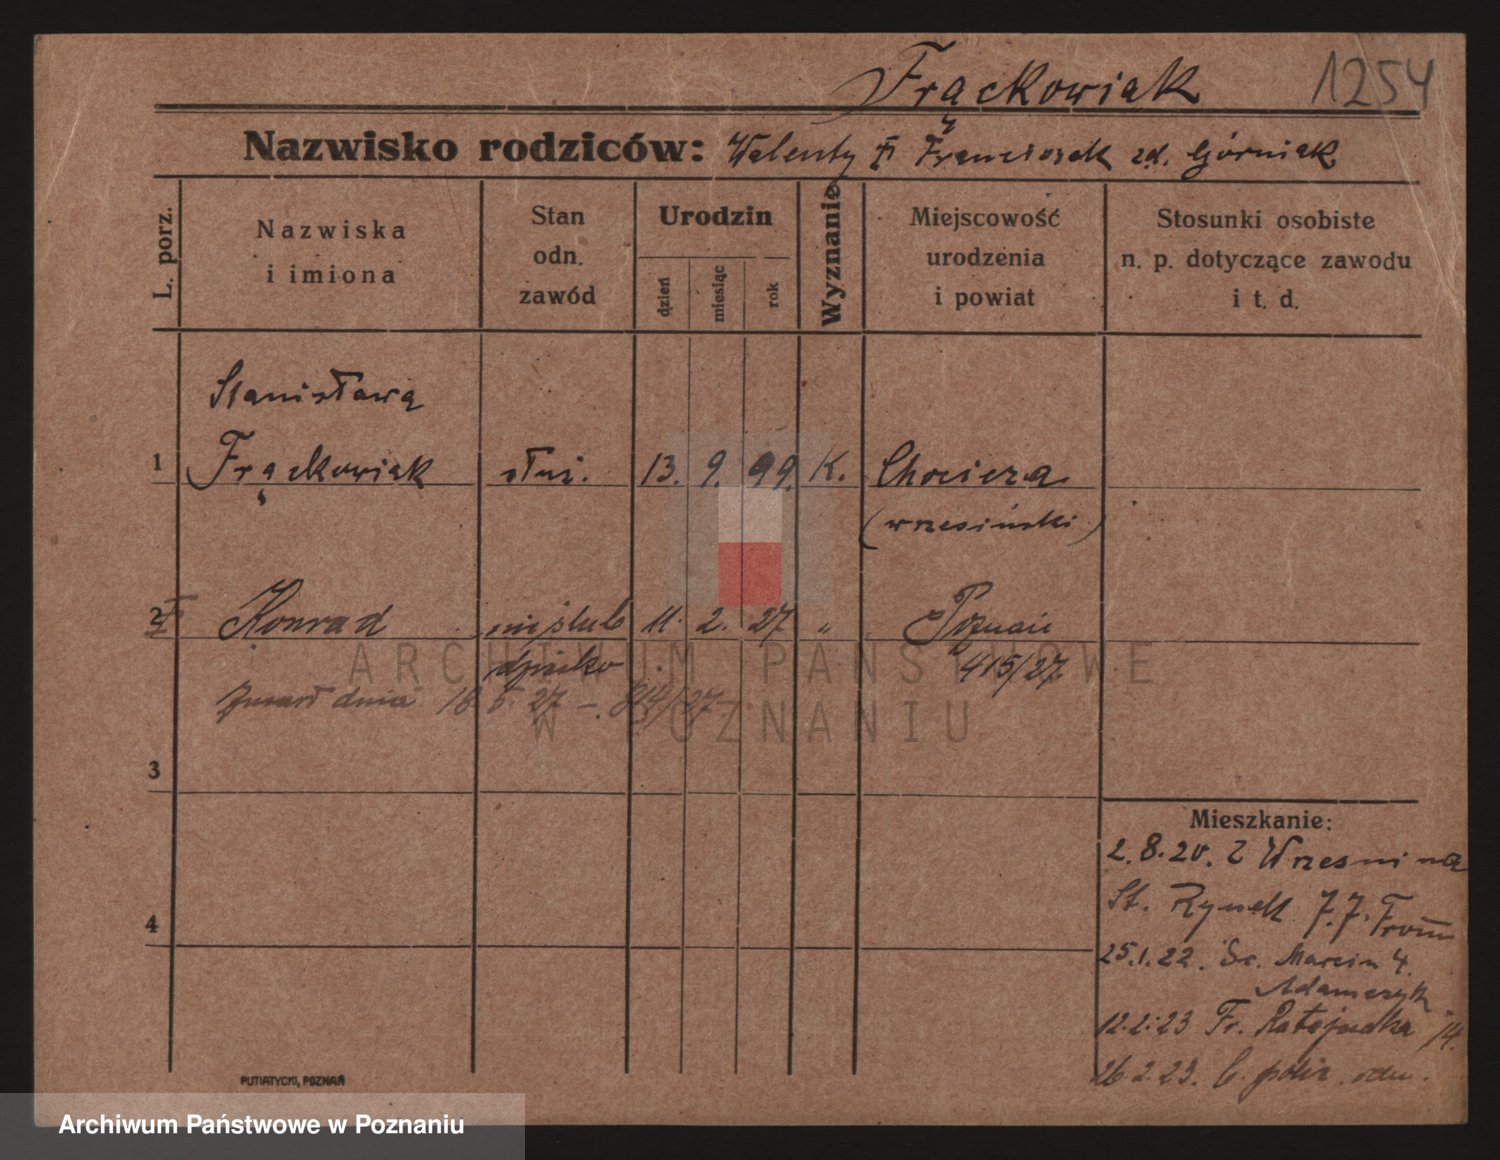 Frąckowiak 1254
Nazwisko rodziców: Walenty i Franciszek zd. Górniak
L. porz.
Nazwiska
i imiona
Stan
odn.
zawód
Urodzin
dzień
miesiąc
rok
Wyznanie
Miejscowość
urodzenia
i powiat
Stosunki osobiste
n. p. dotyczące zawodu
i t. d.
Stanisława
1 Frąckowiak służ. 13. 9. 99. K. Chocicza
(wrzesiński)
2 Konrad nieślub 11. 2. 27 " Poznań
dziecko 415/27
Zmarł dnia 18 5. 27 – 814/27
3
4
Mieszkanie:
2. 8. 20. Z Wrześni na
St. Rynek 7.7.
25.1.22. Św. Marcin 4.
Adamczyk
12.2.23 Fr. Ratajczaka 14.
26.2.23. odm.
PUTIATYCKI, POZNAŃ
ARCHIWUM PAŃSTWOWE
W POZNANIU
Archiwum Państwowe w Poznaniu